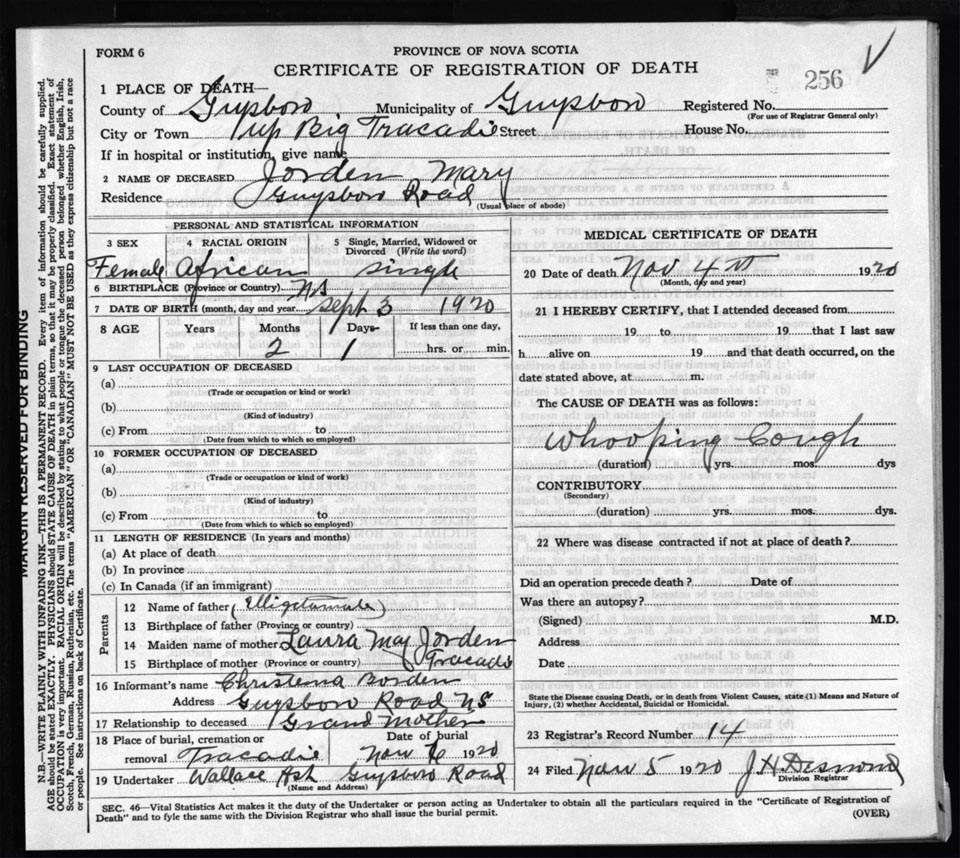 FORM 6
PROVINCE OF NOVA SCOTIA
CERTIFICATE OF REGISTRATION OF DEATH
256
1 PLACE OF DEATH—
County of Guysboro Municipality of Guysboro Registered No.
(For use of Registrar General only)
City or Town up Big Tracadie Street House No.
If in hospital or institution, give name
2 NAME OF DECEASED Jorden Mary
Residence Guysboro Road
(Usual place of abode)
PERSONAL AND STATISTICAL INFORMATION
3 SEX 4 RACIAL ORIGIN 5 Single, Married, Widowed or Divorced (Write the word)
Female African single
6 BIRTHPLACE (Province or Country) NS
7 DATE OF BIRTH (month, day and year) Sept 3 1920
8 AGE Years Months Days If less than one day,
2 1 hrs. or min.
9 LAST OCCUPATION OF DECEASED
(a)
(Trade or occupation or kind or work)
(b)
(Kind of industry)
(c) From to
(Date from which to which so employed)
10 FORMER OCCUPATION OF DECEASED
(a)
(Trade or occupation or kind or work)
(b)
(Kind of industry)
(c) From to
(Date from which to which so employed)
11 LENGTH OF RESIDENCE (In years and months)
(a) At place of death
(b) In province
(c) In Canada (if an immigrant)
Parents
12 Name of father (Elligetamate)
13 Birthplace of father (Province or country)
14 Maiden name of mother Laura May Jorden
15 Birthplace of mother (Province or country) Tracadie
16 Informant's name Christena Borden
Address Guysboro Road NS
17 Relationship to deceased Grand Mother
18 Place of burial, cremation or removal Date of burial
Tracadie Nov 6 1920
19 Undertaker Wallace Ash Guysboro Road
(Name and Address)
MEDICAL CERTIFICATE OF DEATH
20 Date of death Nov 4th 1920
(Month, day and year)
21 I HEREBY CERTIFY, that I attended deceased from
19 to 19 that I last saw
h alive on 19 and that death occurred, on the
date stated above, at m.
The CAUSE OF DEATH was as follows:
Whooping Cough
(duration) yrs. mos. dys
CONTRIBUTORY
(Secondary)
(duration) yrs. mos. dys.
22 Where was disease contracted if not at place of death?
Did an operation precede death? Date of
Was there an autopsy?
(Signed) M.D.
Address
Date
State the Disease causing Death, or in death from Violent Causes, state (1) Means and Nature of
Injury, (2) whether Accidental, Suicidal or Homicidal.
23 Registrar's Record Number 14
24 Filed Nov 5 1920 J H Desmond
Division Registrar
SEC. 46—Vital Statistics Act makes it the duty of the Undertaker or person acting as Undertaker to obtain all the particulars required in the "Certificate of Registration of
Death" and to fyle the same with the Division Registrar who shall issue the burial permit.
(OVER)
MARGIN RESERVED FOR BINDING
N.B.—WRITE PLAINLY WITH UNFADING INK—THIS IS A PERMANENT RECORD. Every item of information should be carefully supplied.
AGE should be stated EXACTLY. PHYSICIANS should STATE CAUSE OF DEATH in plain terms, so that it may be properly classified. Exact statement of
OCCUPATION is very important. RACIAL ORIGIN will be described by stating to what people or tongue the deceased person belonged whether English, Irish,
Scotch, French, German, Russian, Ruthenian, etc. The terms "AMERICAN" OR "CANADIAN" MUST NOT BE USED as they express citizenship but not a race
or people. See instructions on back of Certificate.